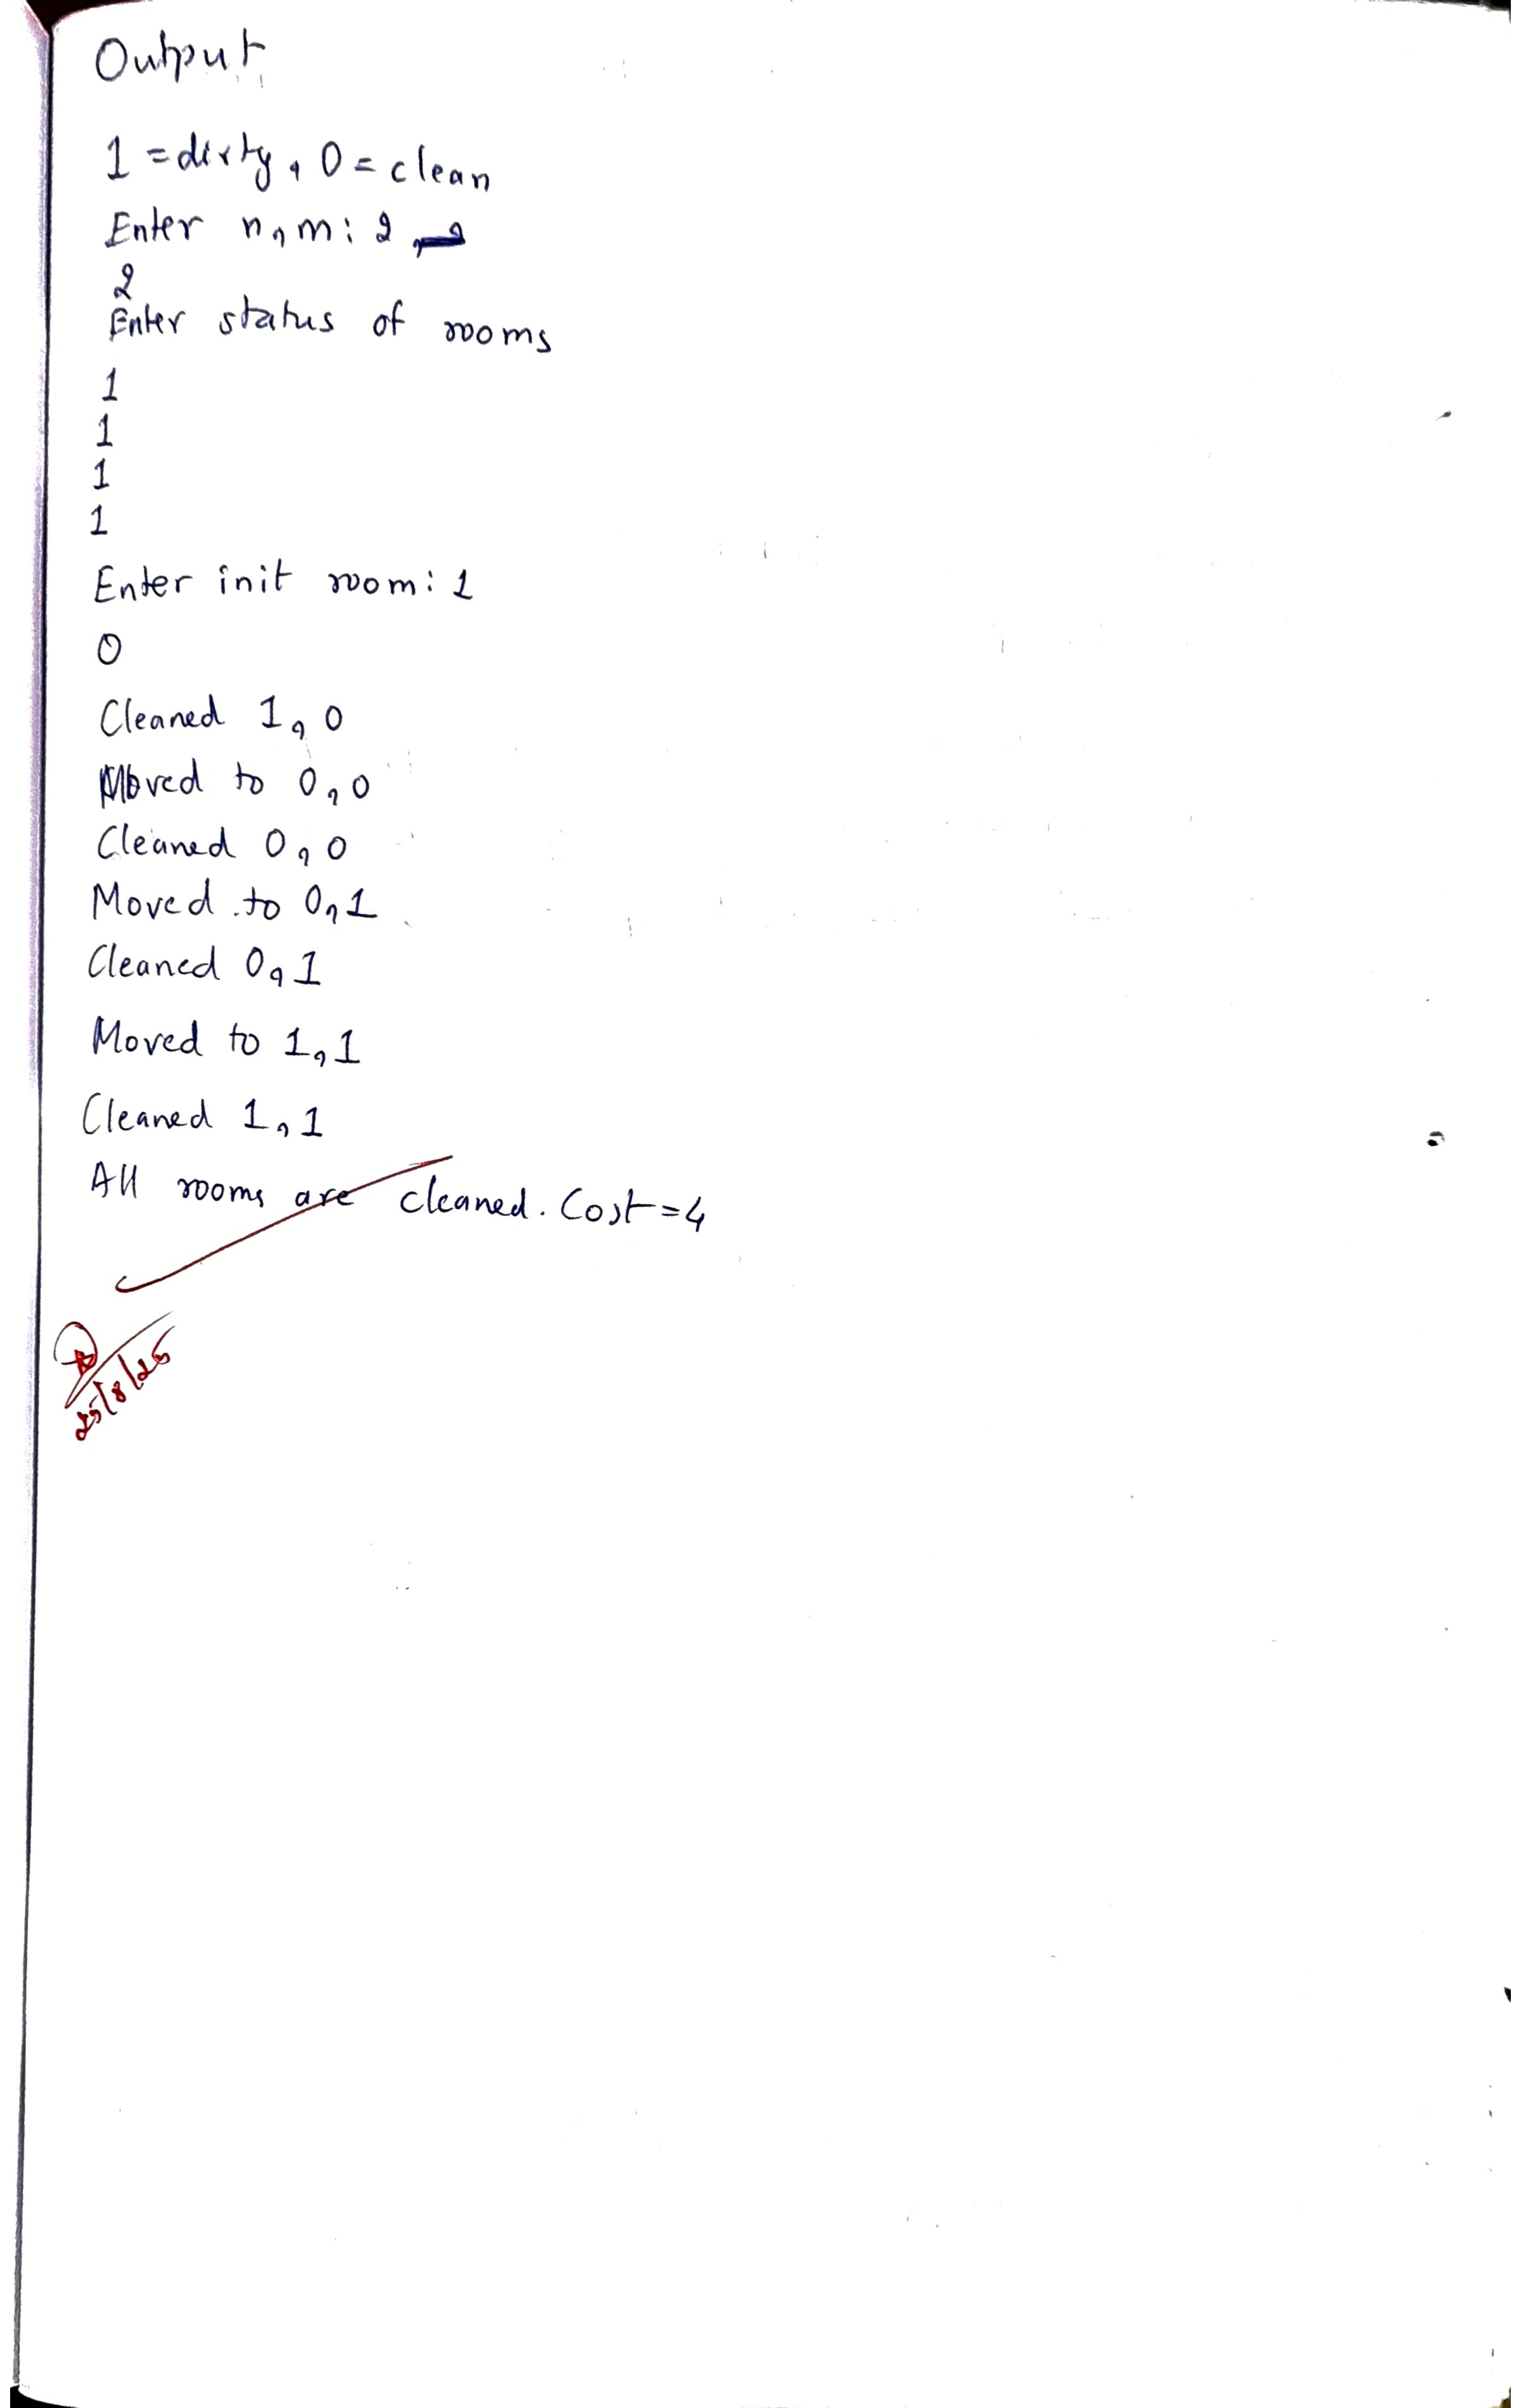 Output
1 = dirty, 0 = clean
Enter n, m: 2
2
Enter status of rooms
1
1
1
1
Enter init room: 1
0
Cleaned 1, 0
Moved to 0, 0
Cleaned 0, 0
Moved to 0, 1
Cleaned 0, 1
Moved to 1, 1
Cleaned 1, 1
All rooms are cleaned. Cost = 4
25/8/25